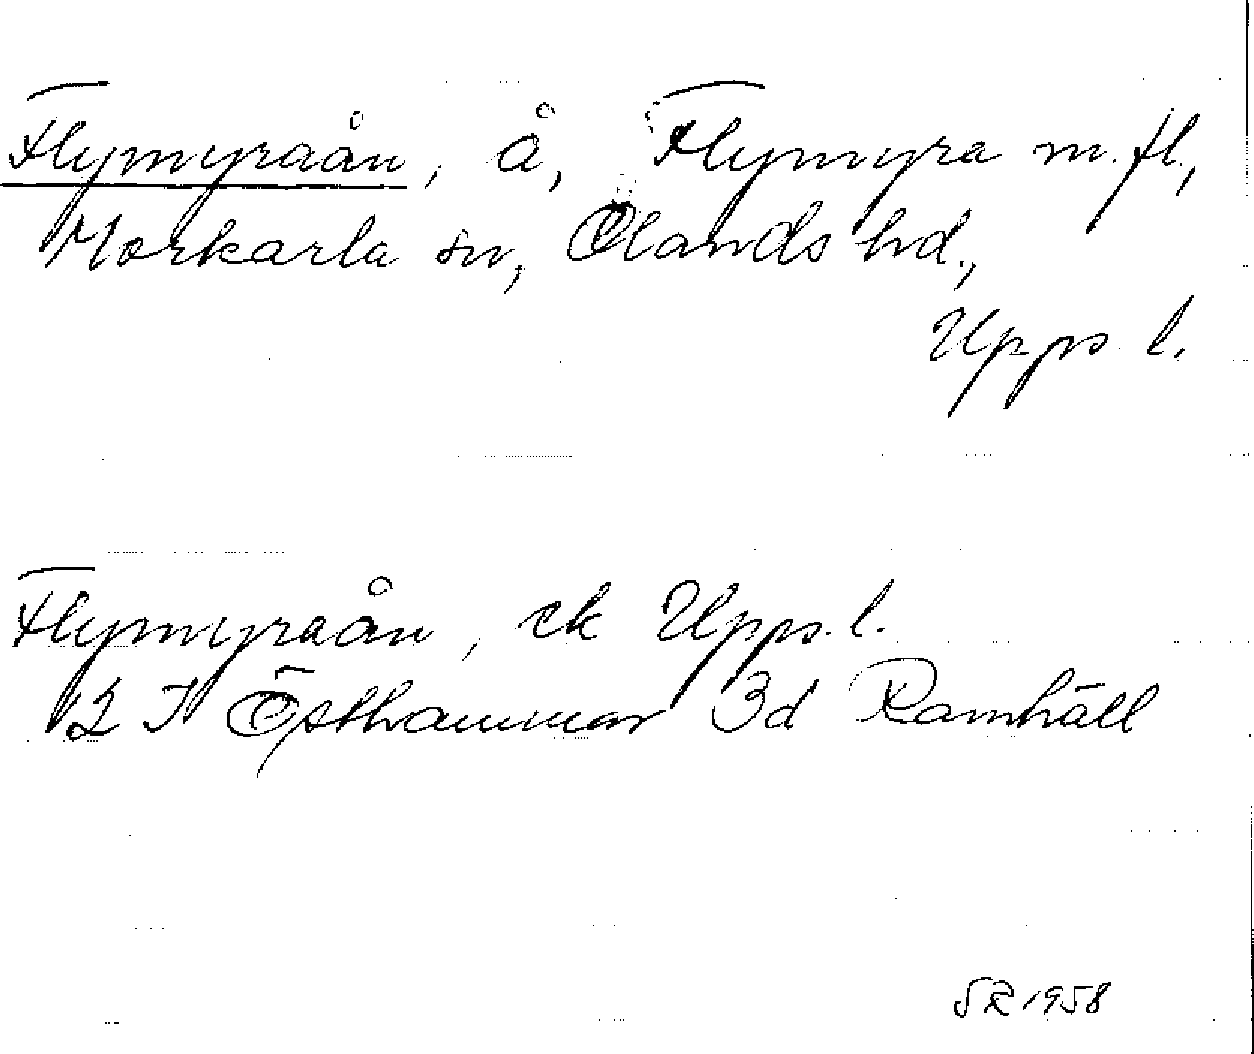 Flymyraån, å, Flymyra m.fl.,
Morkarla sn, Olands hd.,
Upps l.
Flymyraån, ek Upps. l.
12 I Östhammar 3d Ramhäll
SR 1958